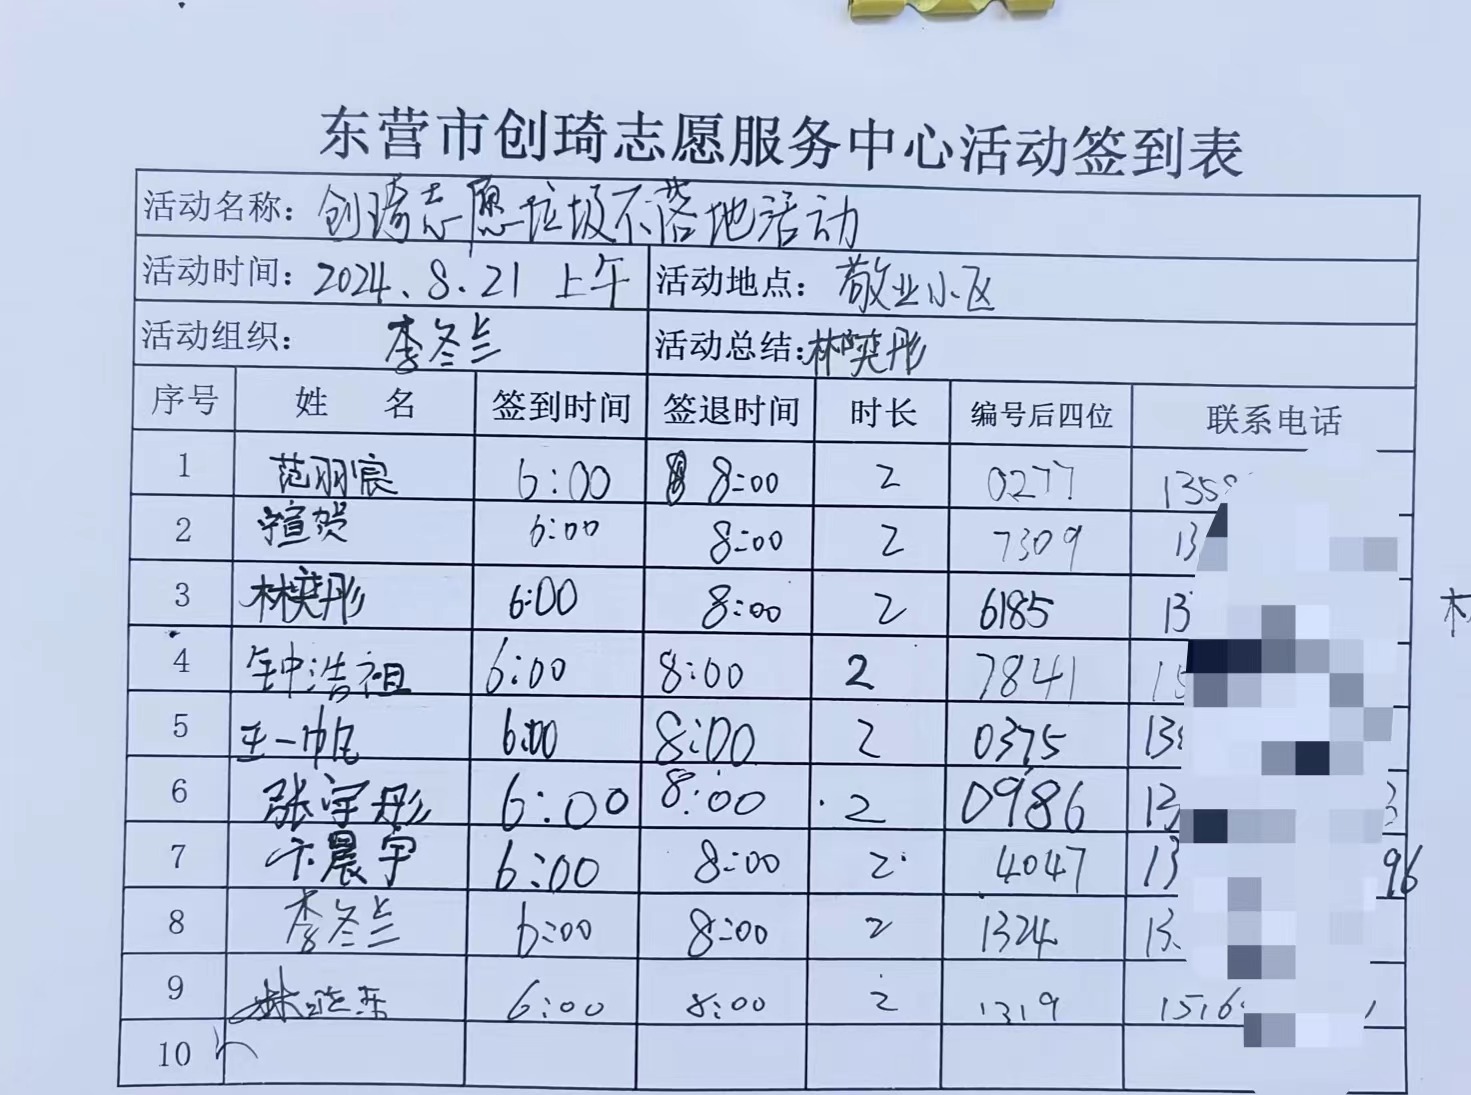 东营市创琦志愿服务中心活动签到表
活动名称：创琦志愿垃圾不落地活动
活动时间：2024.8.21 上午 活动地点：敬业小区
活动组织：李冬兰 活动总结：林奕彤
序号 姓 名 签到时间 签退时间 时长 编号后四位 联系电话
1 范羽宸 6:00 8:00 2 0277 1358
2 宁宣贺 6:00 8:00 2 7309 13
3 林奕彤 6:00 8:00 2 6185 13
4 钟浩祖 6:00 8:00 2 7841 15
5 王一帆 6:00 8:00 2 0375 13
6 张宇彤 6:00 8:00 2 0986 13 3
7 卞晨宇 6:00 8:00 2 4047 13 96
8 李冬兰 6:00 8:00 2 1324 13
9 林 东 6:00 8:00 2 1319 1516
10